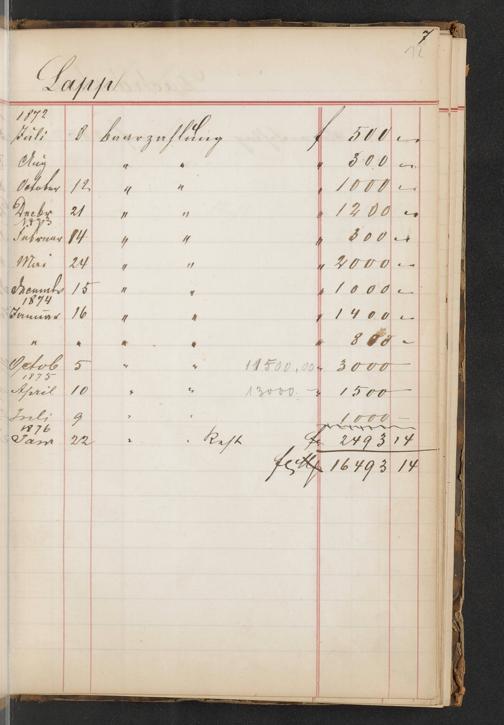 7
12
Lapp
1872
Juli 8 baarzahlung f 500 „
Aug „ „ „ 300 „
October 12 „ „ „ 1000 „
Decbr 21 „ „ „ 1200 „
1873
Februar 14 „ „ „ 300 „
Mai 24 „ „ „ 2000 „
December 15 „ „ „ 1000 „
1874
Januar 16 „ „ „ 1400 „
„ „ „ „ „ 800 „
Octob 5 „ „ 11500.00 „ 3000 —
1875
April 10 „ „ 13000. „ 1500 —
Juli 9 „ „ 1000 —
1876
Jan 22 „ „ Rest f 2493 14
f 16493 14